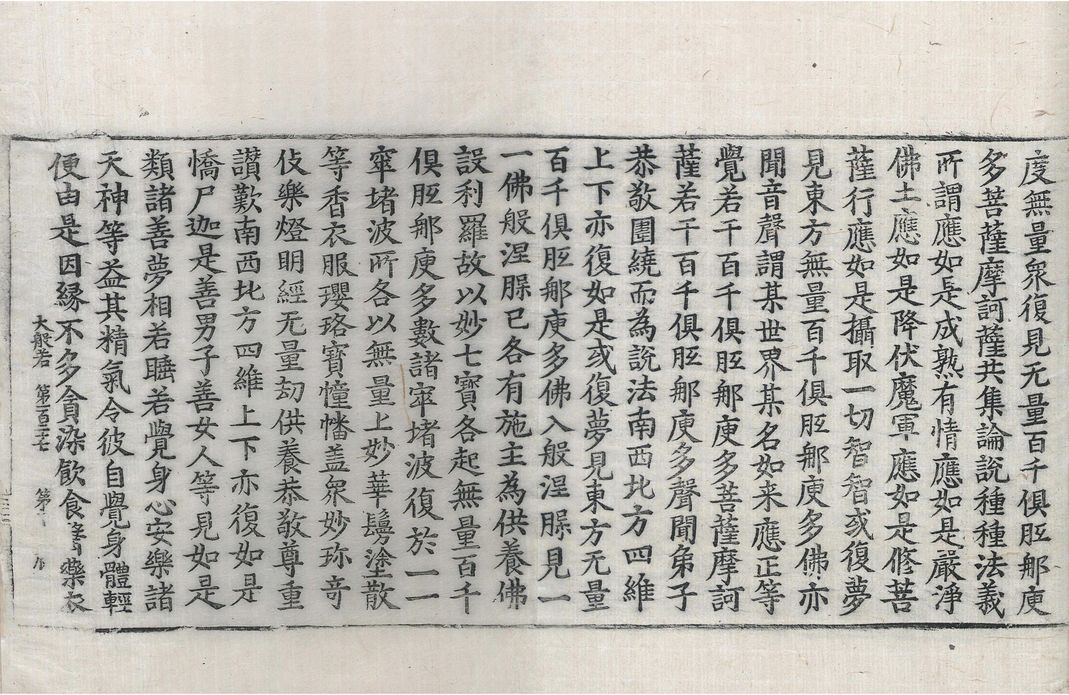 度無量衆復見无量百千俱胝那庾
多菩薩摩訶薩共集論說種種法義
所謂應如是成熟有情應如是嚴淨
佛土應如是降伏魔軍應如是修菩
薩行應如是攝取一切智智或復夢
見東方無量百千俱胝那庾多佛亦
聞音聲謂某世界某名如来應正等
覺若干百千俱胝那庾多菩薩摩訶
薩若干百千俱胝那庾多聲聞弟子
恭敬圍繞而為說法南西北方四維
上下亦復如是或復夢見東方无量
百千俱胝那庾多佛入般涅槃見一
一佛般涅槃已各有施主為供養佛
設利羅故以妙七寳各起無量百千
俱胝那庾多數諸窣堵波復於一一
窣堵波所各以無量上妙華鬘塗散
等香衣服瓔珞寳幢幡盖衆妙珎奇
伎樂燈明經无量劫供養恭敬尊重
讃歎南西北方四維上下亦復如是
憍尸迦是善男子善女人等見如是
類諸善夢相若睡若覺身心安樂諸
天神等益其精氣令彼自覺身體輕
便由是因縁不多貪染飲食醫藥衣
大般若 第一百二七 第